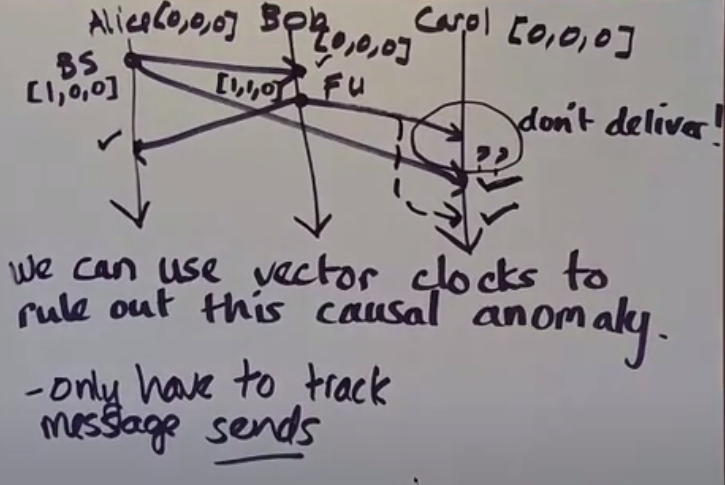 Alice [0,0,0] Bob [0,0,0] Carol [0,0,0]
BS
[1,0,0]
[1,1,0] FU
don't deliver!
we can use vector clocks to
rule out this causal anomaly.
-only have to track
message sends